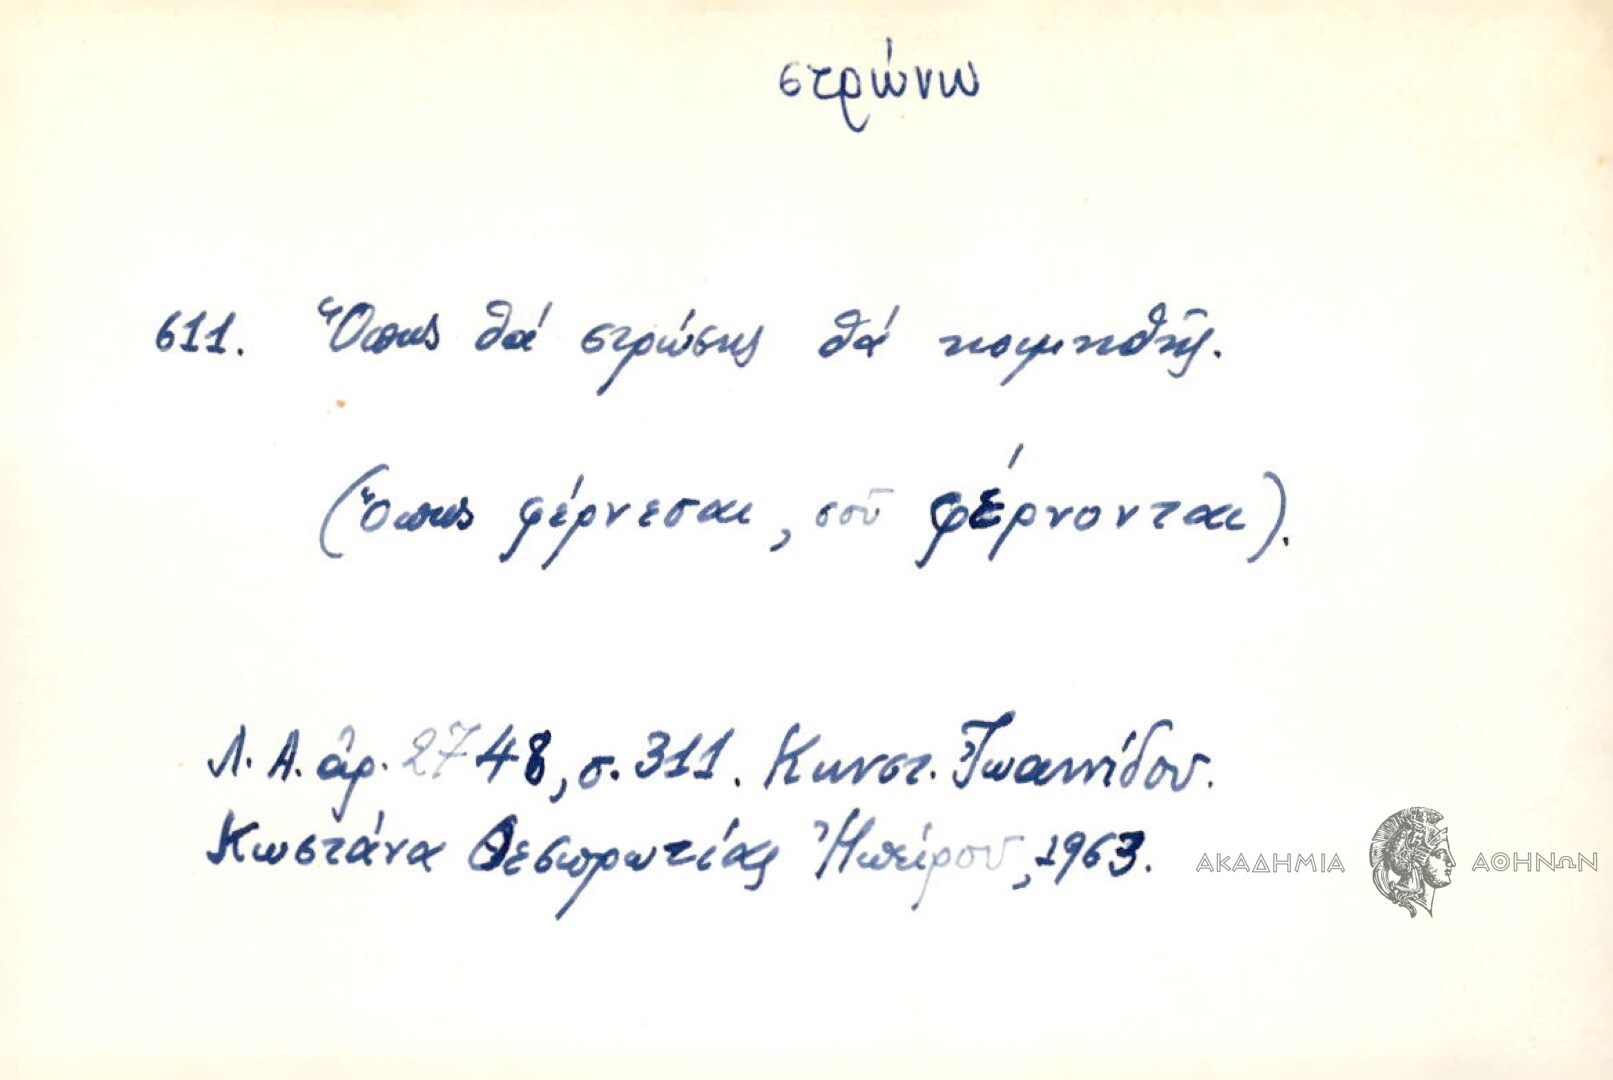 στρώνω
611. Ὅπως θά στρώσης θά κοιμηθῆς.
(Ὅπως φέρνεσαι, σοῦ φέρνονται).
Λ. Α. ἀρ. 2748, σ. 311. Κωνστ. Ἰωαννίδου.
Κωστάνα Θεσπρωτίας Ἠπείρου, 1963.
ΑΚΑΔΗΜΙΑ ΑΘΗΝΩΝ